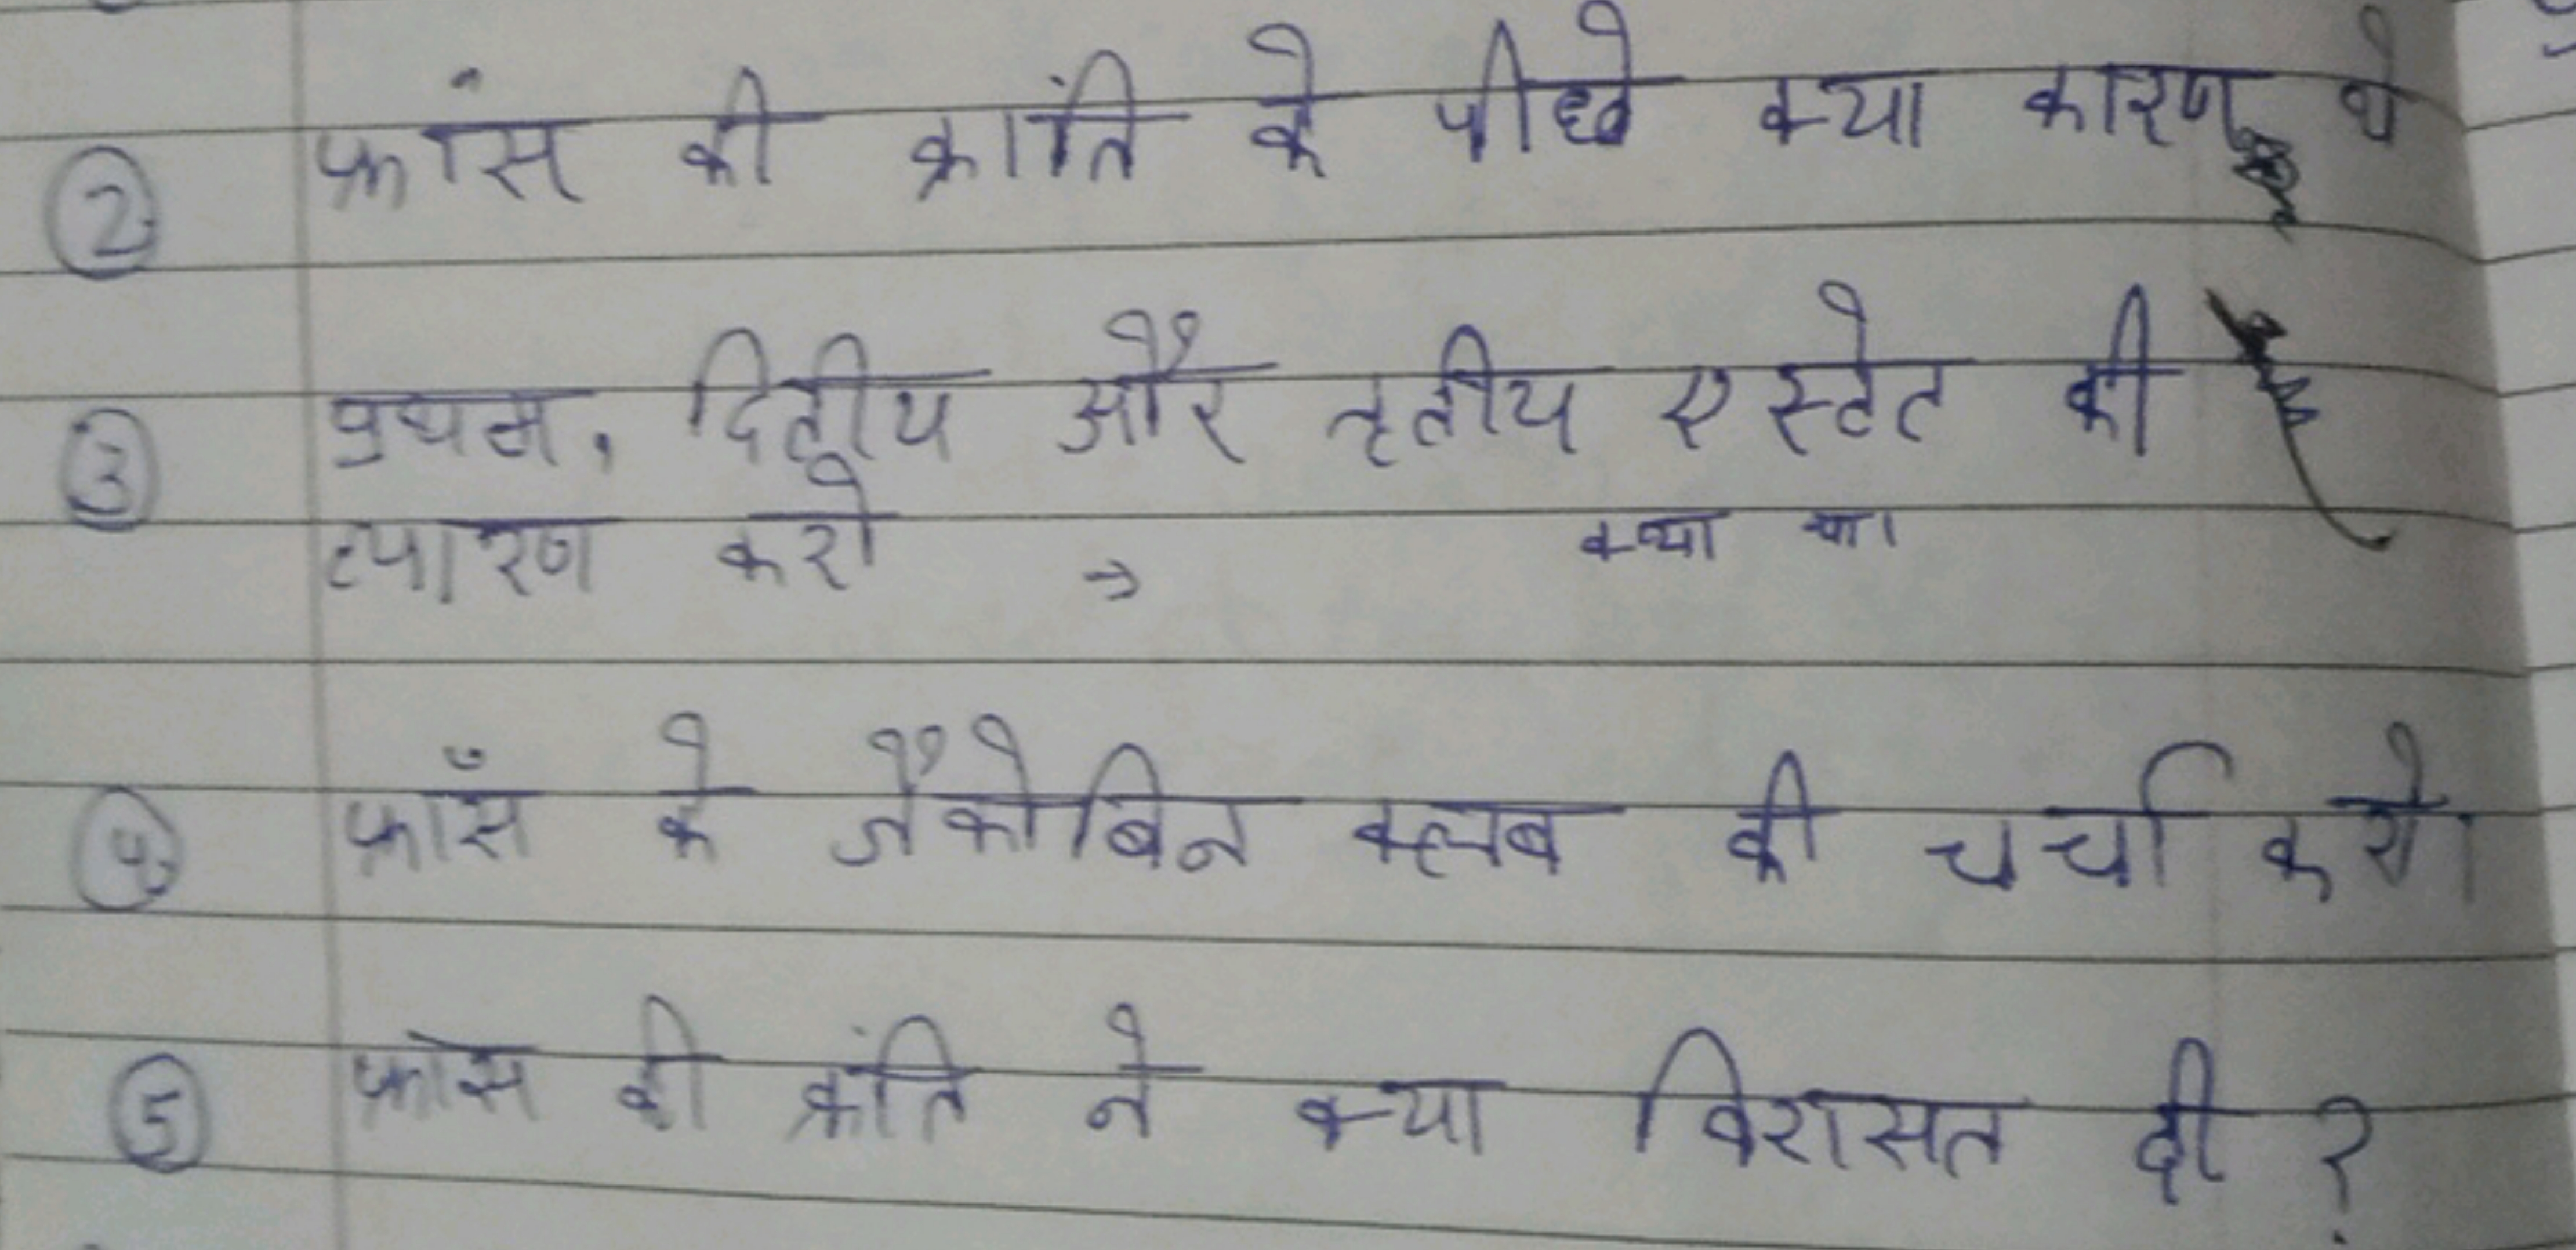 ② फ्रांस की क्रांति के पीछे क्या कारण थे
③ प्रथम, द्वितीय और तृतीय एस्टेट की
त्यारण करो → क्या था।
④ फ्राँस के जैकोबिन क्लब की चर्चा करो।
⑤ फ्रांस की क्रांति ने क्या विरासत दी ?